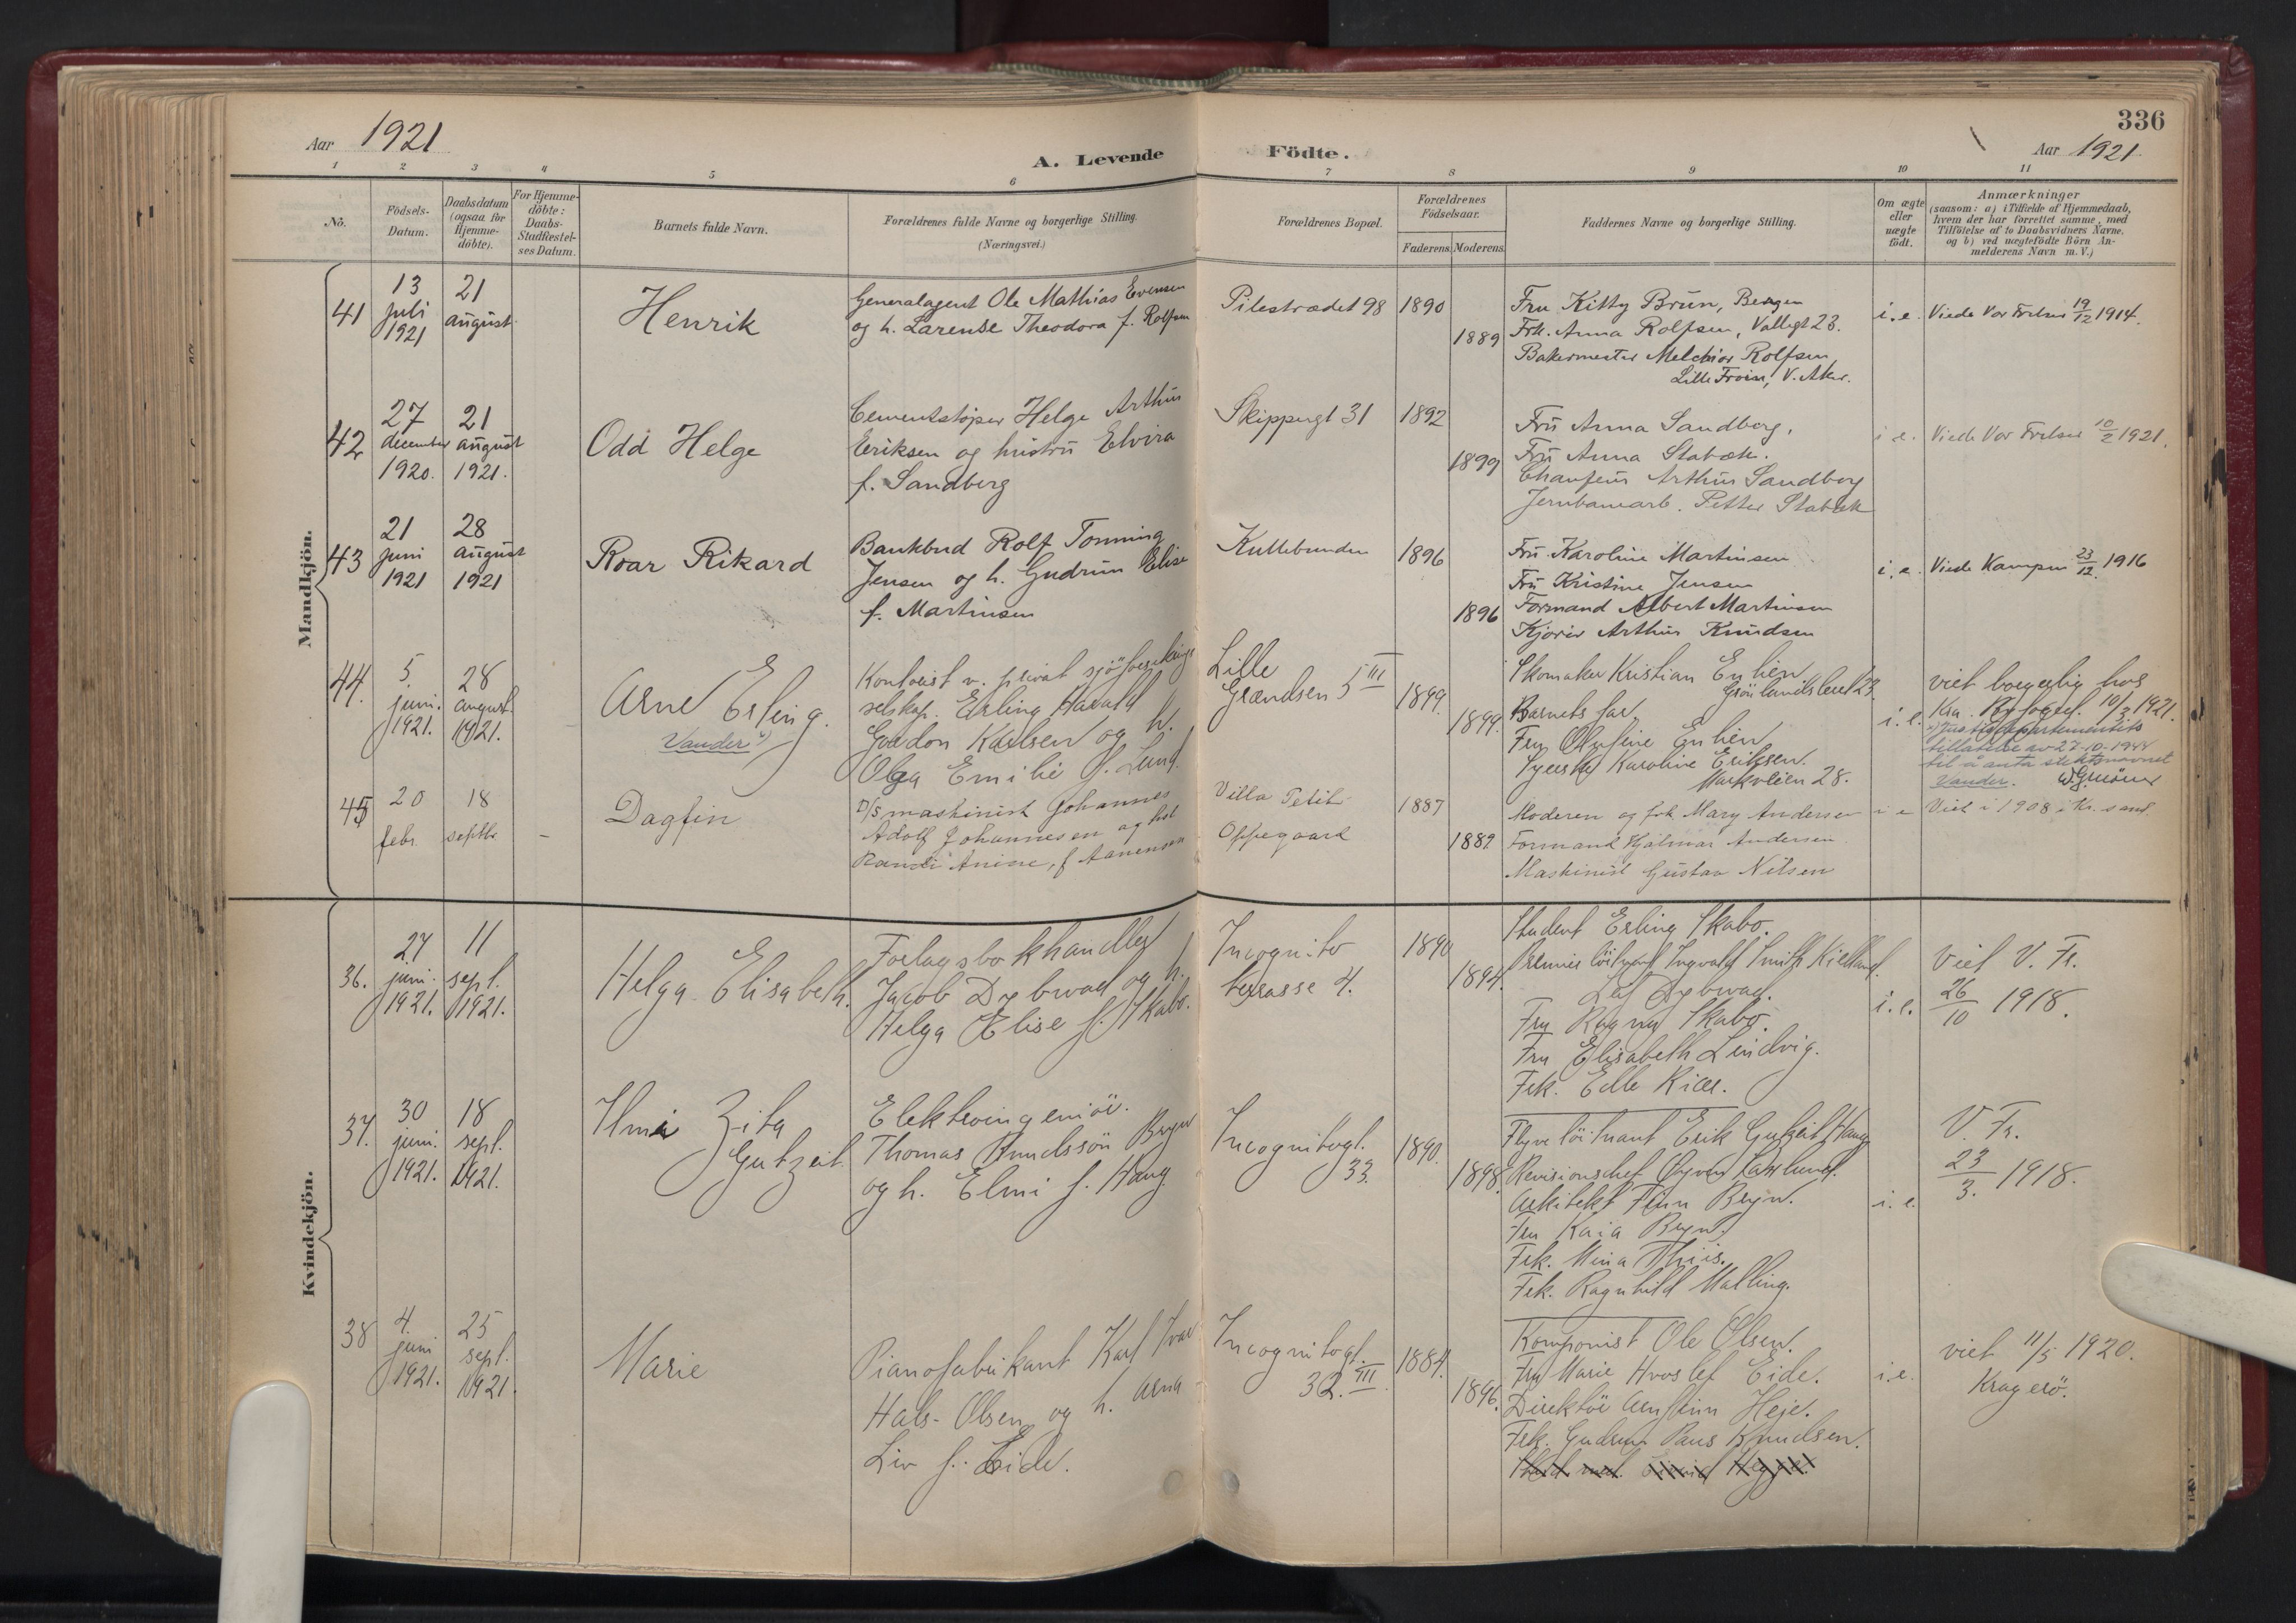 336
Aar 1921
A. Levende Födte.
Aar 1921
1 2 3 4 5 6 7 8 9 10 11
No.
Födsels-
Datum.
Daabsdatum
(ogsaa for
Hjemme-
döbte).
For Hjemme-
döbte:
Daabs-
Stadfæstel-
ses Datum.
Barnets fulde Navn.
Forældrenes fulde Navne og borgerlige Stilling.
(Næringsvei.)
Forældrenes Bopæl.
Forældrenes
Födselsaar.
Faderens. Moderens.
Faddernes Navne og borgerlige Stilling.
Om ægte
eller
uægte
födt.
Anmærkninger
(saasom: a) i Tilfælde af Hjemmedaab,
hvem der har forrettet samme, med
Tilföielse af to Daabsvidners Navne.
og b) ved uægtefödte Börn An-
melderens Navn m. V.)
Mandkjön.
41
13
juli
1921
21
august
Henrik
Generalagent Ole Mathias Evensen
og h. Larense Theodora f. Rolfsen
Pilestrædet 98
1890
1889
Fru Kitty Brun, Bergen
Frk. Anna Rolfsen, Vallegt 23.
Bakermester Melchior Rolfsen,
Lille Froen, V. Aker.
i. e.
Viede Vor Frelser 19/12 1914.
42
27
december
1920.
21
august
1921.
Odd Helge
Cementstøper Helge Arthur
Eriksen og hustru Elvira
f. Sandberg
Skippergt 31
1892
1899
Fru Anna Sandberg.
Fru Anna Stabæk.
Chaufeur Arthur Sandberg
Jernbanearb. Petter Stabæk
i e.
Viede Vor Frelser 10/2 1921.
43
21
juni
1921
28
august
1921
Roar Rikard
Bankbud Rolf Tonning
Jensen og h. Gudrun Elise
f. Martinsen
Kullebunden
1896
1896
Fru Karoline Martinsen
Fru Kristine Jensen
Formand Albert Martinsen
Kjører Arthur Knudsen
i. e.
Viede Kampen 23/12. 1916
44.
5.
juni.
1921.
28
august.
1921.
Arne Erling.
Vander 1)
Kontorist v. privat sjöforsikrings
selskap. Erling Harald
Gordon Karlsen og h.
Olga Emilie f. Lund.
Lille
Grændsen 5 III
1899.
1899.
Skomaker Kristian Enlien
Grönlandsleret 23.
Barnets far.
Fru Olufine Enlien
Syerske Karoline Eriksen.
Markveien 28.
i. e.
viet borgerlig hos
Kra. Byfoged. 10/3 1921.
1) Justisdepartementets
tillatelse av 27-10-1944
til å anta slektsnavnet
Vander.
45
20
febr.
18
septbr.
-
Dagfin
D/S maskinist Johannes
Adolf Johannesen og hst
Randi Anine, f Aanensen
Villa Petit
Oppegaard
1887
1882
Moderen og frk. Mary Andersen
Formand Hjalmar Andersen
Maskinist Gustav Nilsen
i e
Viet i 1908 i Kr. sand.
Kvindekjön.
36.
27
juni.
1921.
11
sept.
1921.
Helga Elisabeth.
Forlagsbokhandler
Jacob Dybwad og h.
Helga Elise f. Skabo.
Incognito
terrasse 4.
1890
1894.
Student Erling Skabo.
Premierlöitnant Ingvald Smith Kielland.
Dybwad.
Fru Ragna Skabo.
Fru Elisabeth Lindvig.
Frk. Edle Kiær.
i. e.
Viet V. Fr.
26/10 1918.
37.
30
juni.
1921.
18
sept.
1921.
Zita
Gutzeit.
Elektroingeniör.
Thomas Knudssön Bryn
og h. Elmi f. Hang.
Incognitogt.
33.
1890.
1898.
Flyverlöitnant Erik Gutzeit
Revisionschef
Arkitekt Finn Bryn.
Fru Kaia Bryn.
Frk. Mina Thiis.
Frk. Ragnhild Malling.
i. e.
V. Fr.
23/3. 1918.
38
4.
juni
1921.
25
sept.
1921.
Marie
Pianofabrikant Karl Ivar
Hals-Olsen og h. Arna
Liv f. Eide.
Incognitogt.
32. III
1884.
1896.
Komponist Ole Olsen.
Fru Marie Hvoslef Eide.
Direktör Arnfinn Heje.
Frk. Gudrun Paus Knudsen.
i. e.
viet 11/5 1920.
Kragerö.